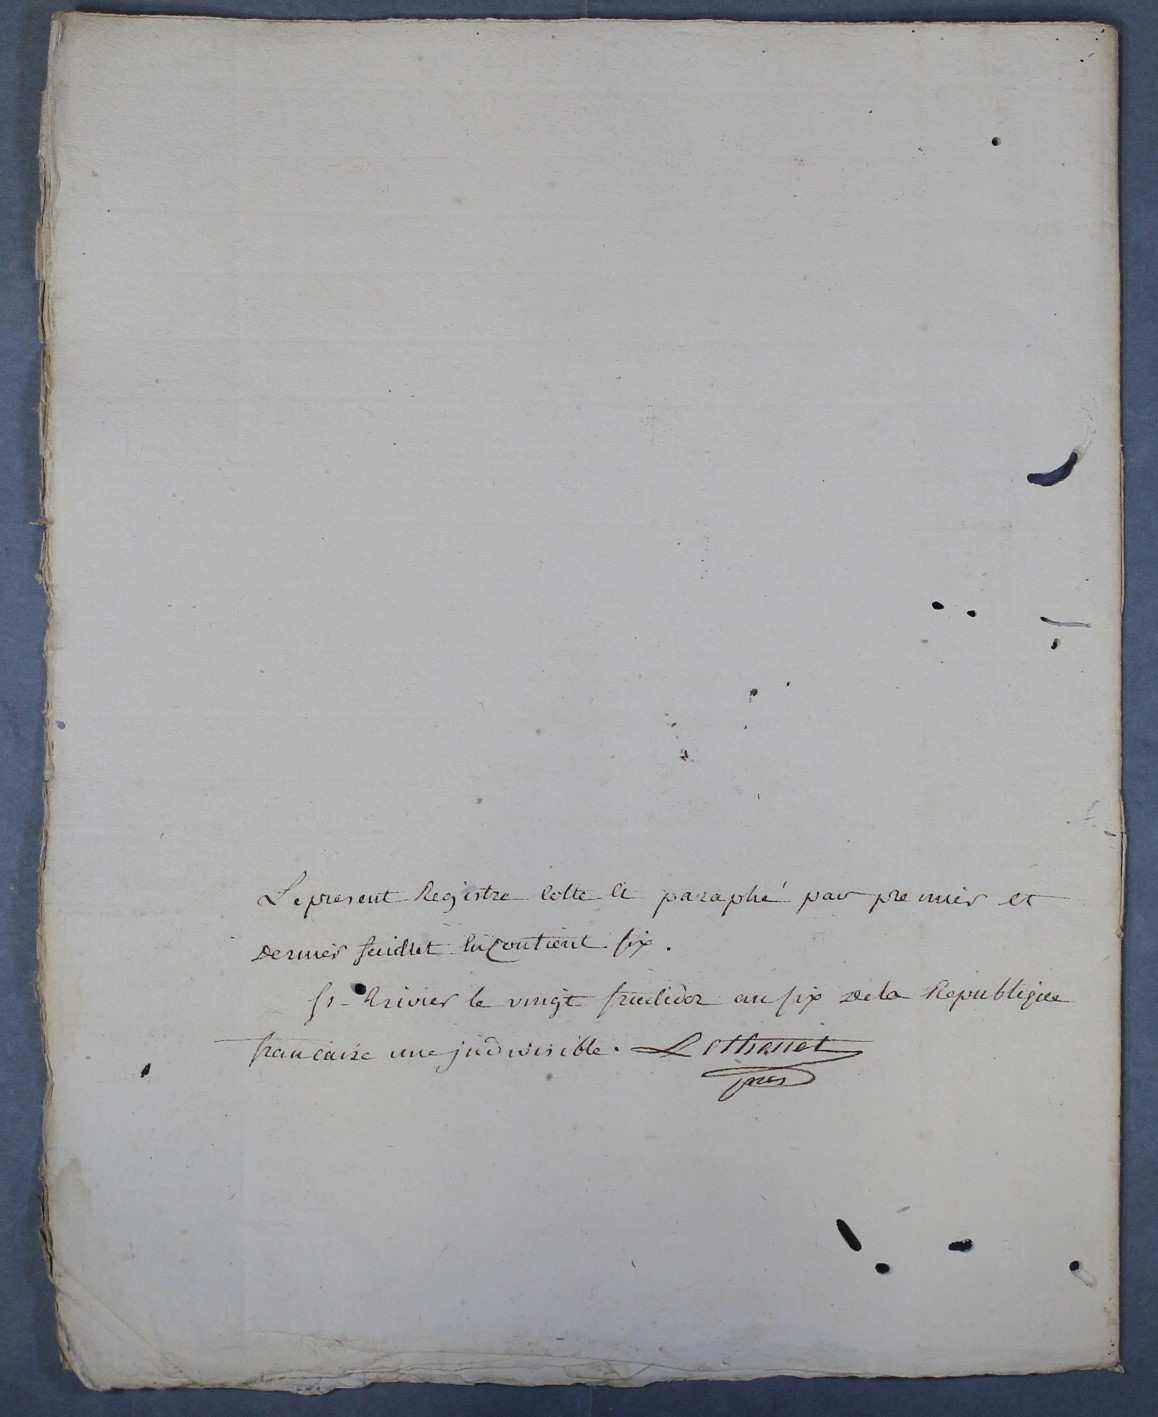 Le present Registre Cotte et paraphé par premier et
dernier feuillet en Contient six.
St- trivier le vingt fructidor an six de la Republique
francaise une indivisible.
pres